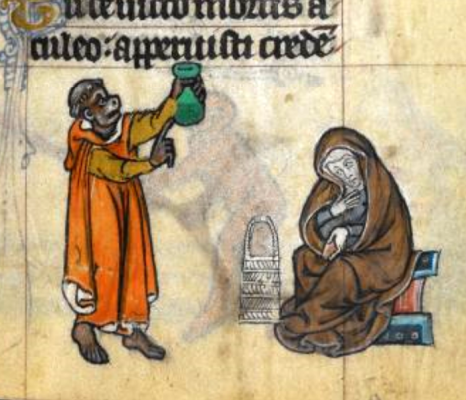 Tu deuicto mortis a
culeo: apperuisti credē